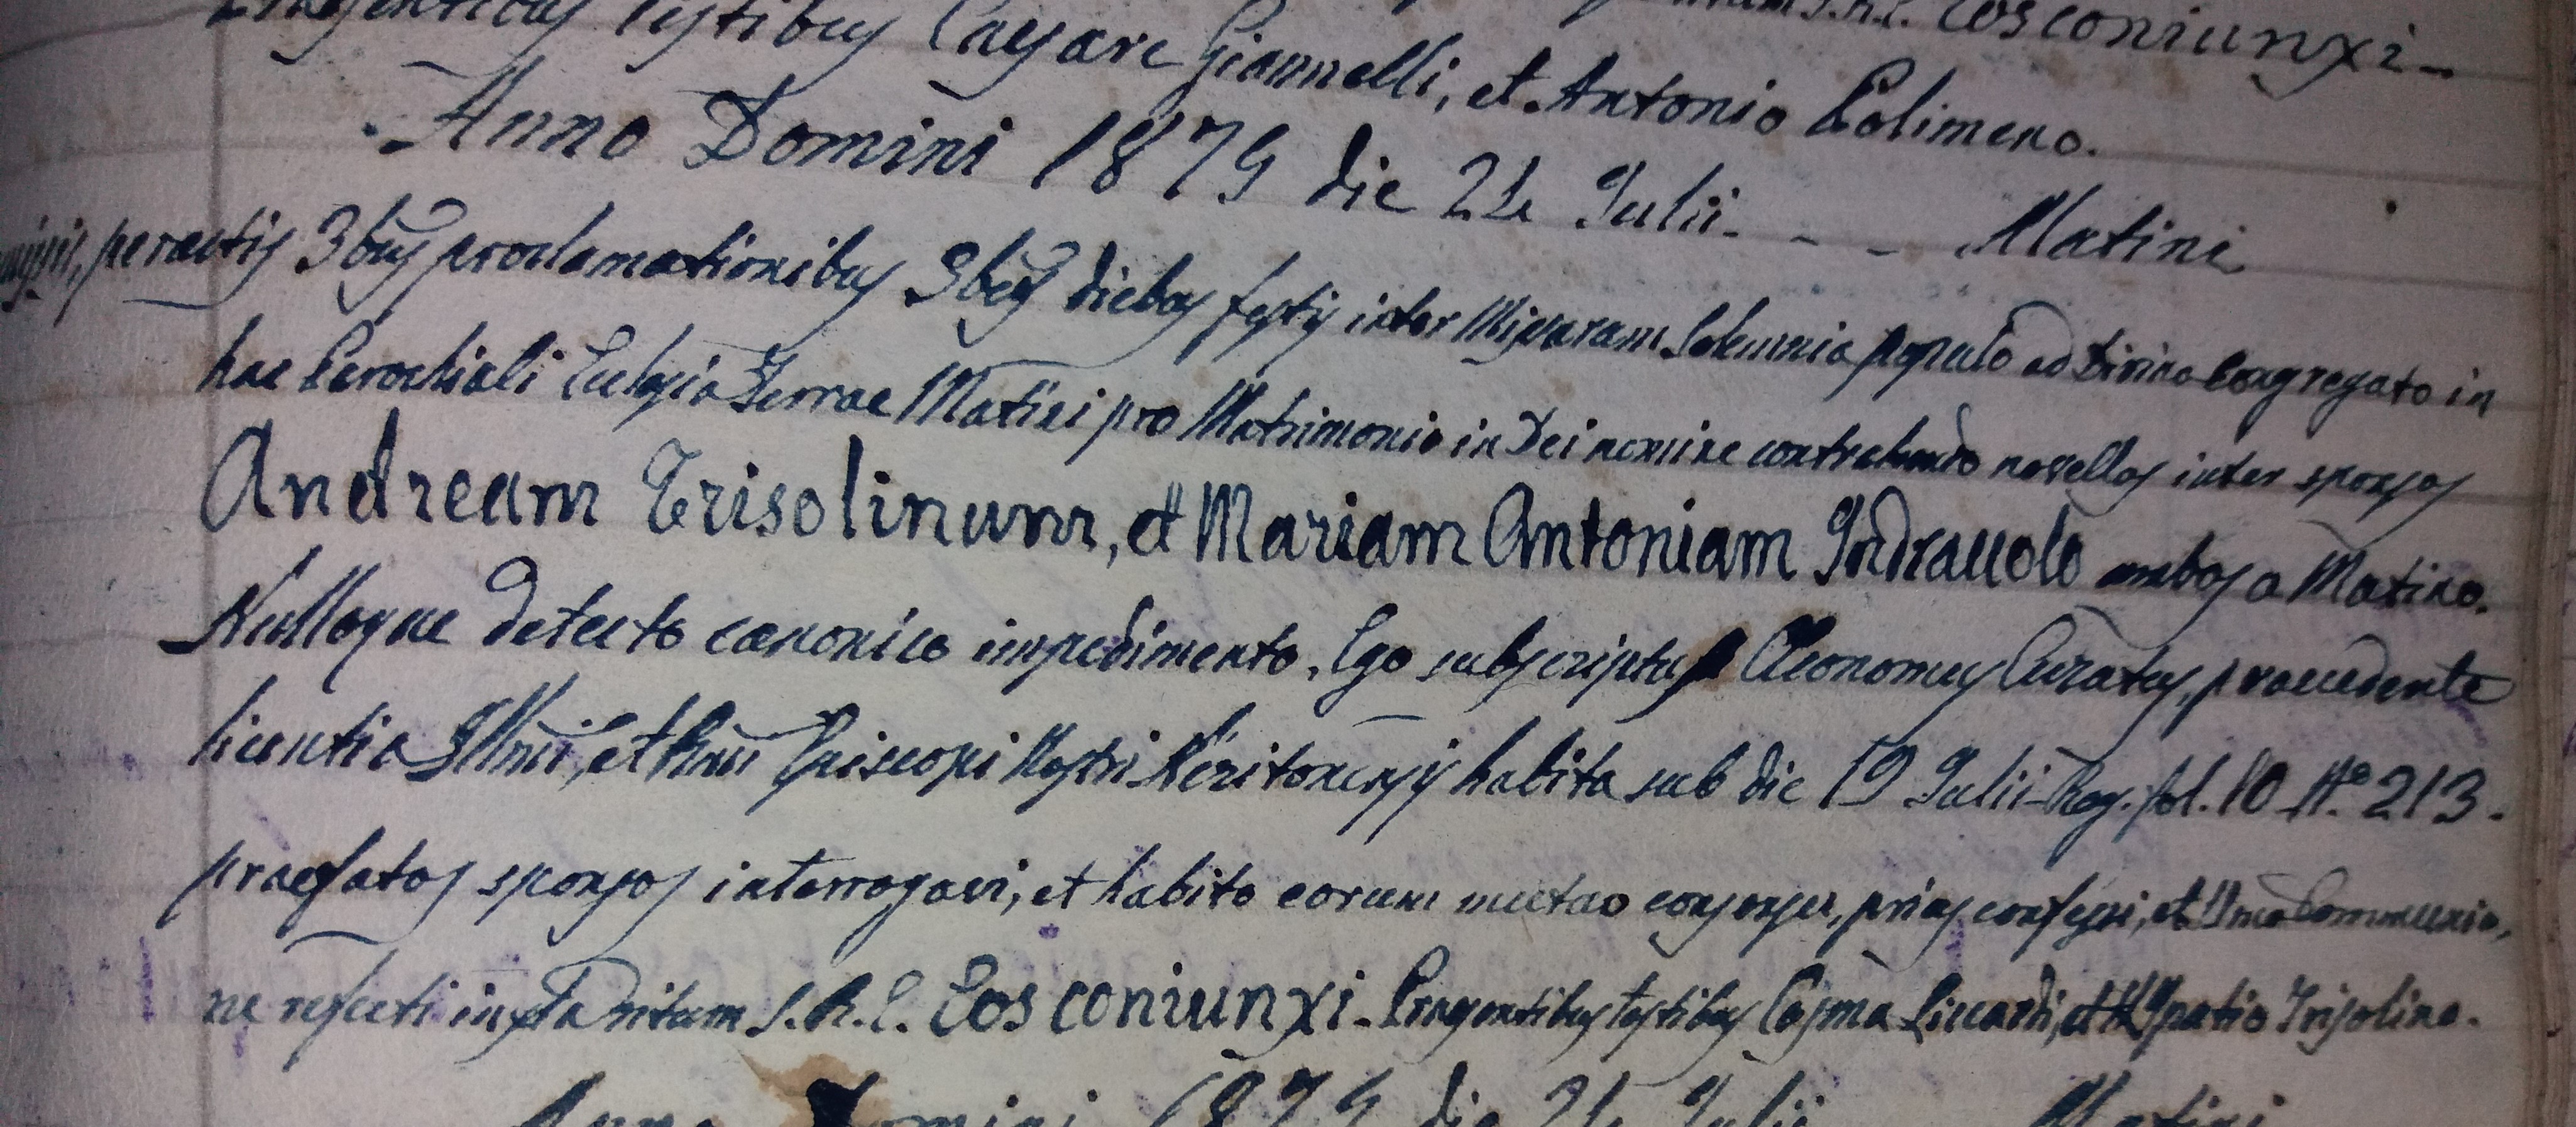 Praesentibus testibus Caesare Giannelli, et Antonio Polimeno.
Eos coniunxi_
Anno Domini 1879 die 21 Julii - - - Matini
peractis 3bus proclamationibus 3bus diebus festis inter Missarum Solemnia populo ad Divina Congregato in
hac Parochiali Eclesia Terrae Matini pro Matrimonio in Dei nomine contrahendo novellos inter sponsos
Andream Trisolinum, et Mariam Antoniam Indraccolo ambos a Matino.
Nulloque detecto canonico impedimento. Ego subscriptus Oeconomus Curatus, praecedente
licentia Illmi, et Rmi Episcopi Nostri Neritonensis habita sub die 19 Julii Reg. fol. 10 N.o 213.
praefatos sponsos interrogavi, et habito eorum mutuo consensu, prius confessi, et Communio,
ne refecti iuxta Ritum S.R.E. Eos coniunxi_ Praesentibus testibus Cosma Siccardi, et Ypatio Trisolino.
Anno Domini 1879 die 21 Julii Matini